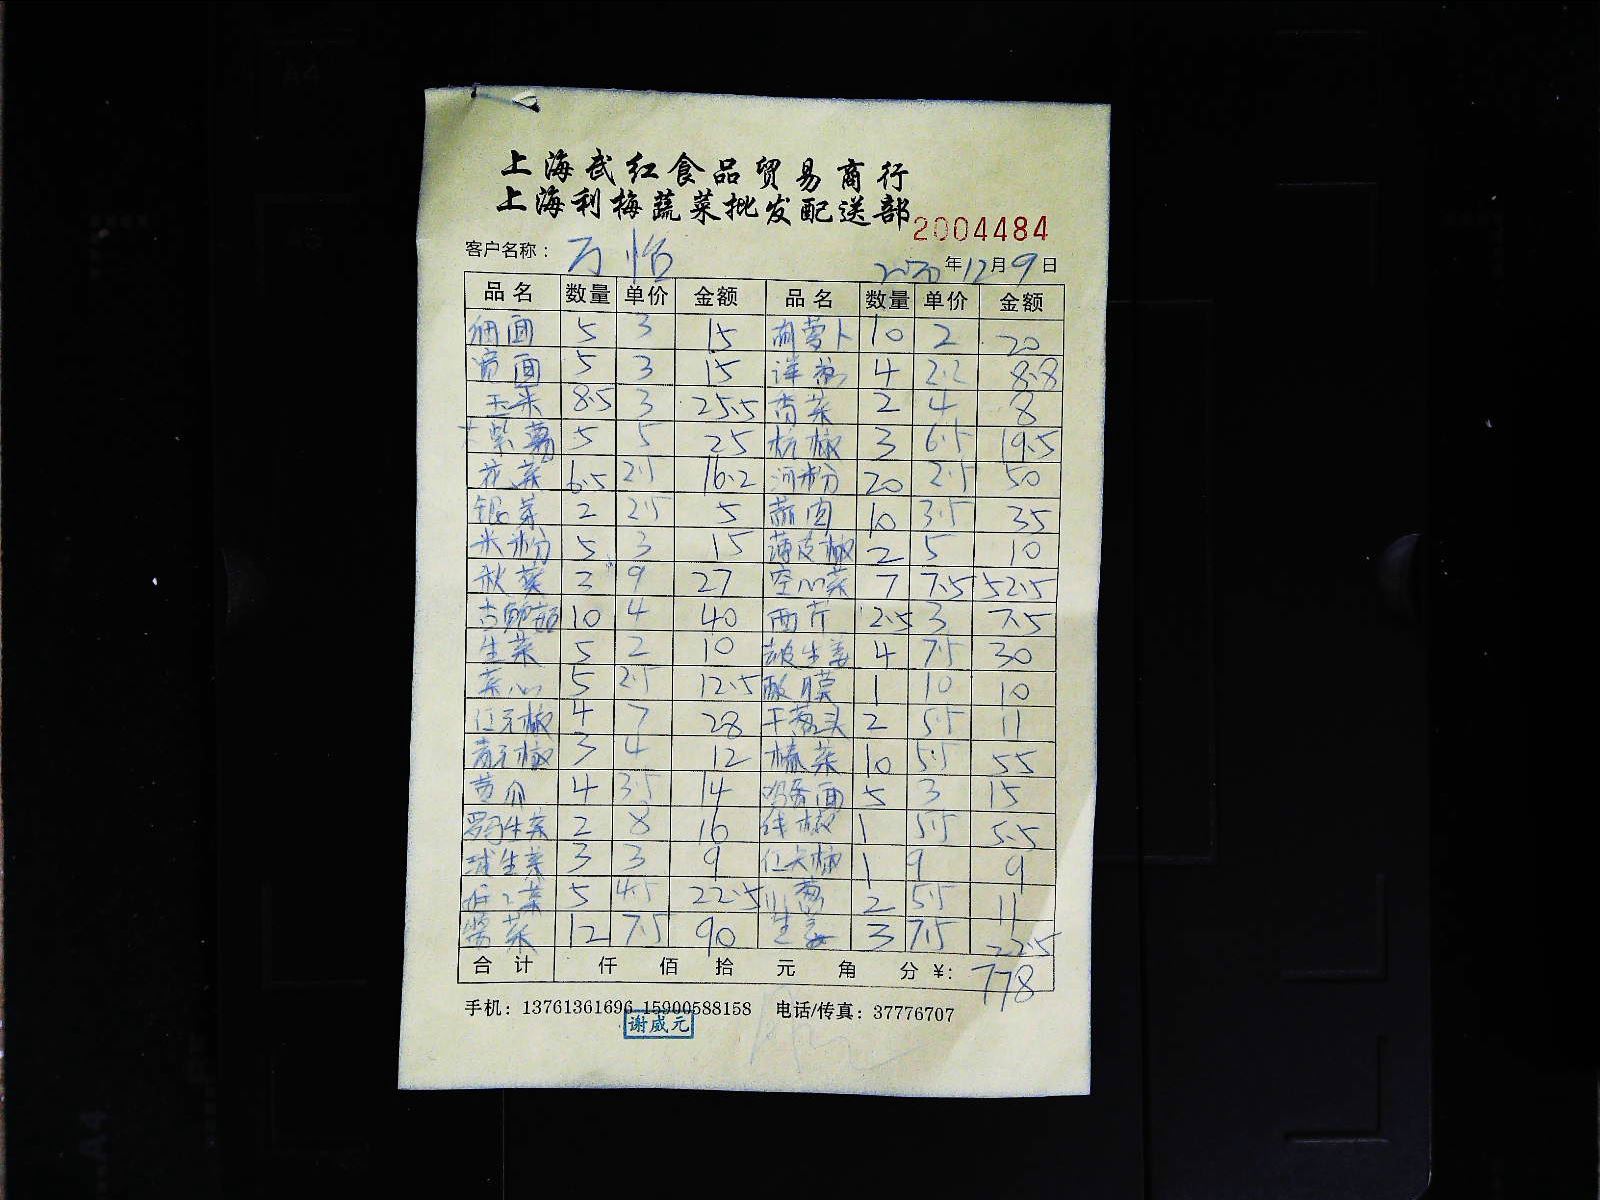 上海武红食品贸易商行
上海利梅蔬菜批发配送部
2004484
客户名称： 万怡 2020年12月9日
品名 数量 单价 金额 品名 数量 单价 金额
细面 5 3 15 胡萝卜 10 2 20
宽面 5 3 15 洋葱 4 2.2 8.8
玉米 8.5 3 25.5 香菜 2 4 8
紫薯 5 5 25 杭椒 3 6.5 19.5
花菜 6.5 2.5 16.2 河粉 20 2.5 50
银芽 2 2.5 5 10 3.5 35
米粉 5 3 15 薄皮椒 2 5 10
秋葵 3 9 27 空心菜 7 7.5 52.5
10 4 40 西芹 2.5 3 7.5
生菜 5 2 10 生姜 4 7.5 30
菜心 5 2.5 12.5 1 10 10
红尖椒 4 7 28 干葱头 2 5.5 11
青尖椒 3 4 12 榛菜 10 5.5 55
黄瓜 4 3.5 14 鸡蛋面 5 3 15
罗马生菜 2 8 16 线椒 1 5.5 5.5
球生菜 3 3 9 红尖椒 1 9 9
5 4.5 22.5 小葱 2 5.5 11
12 7.5 90 生姜 3 7.5 22.5
合计 仟 佰 拾 元 角 分 ¥: 778
手机：13761361696 15900588158 电话/传真：37776707
谢威元